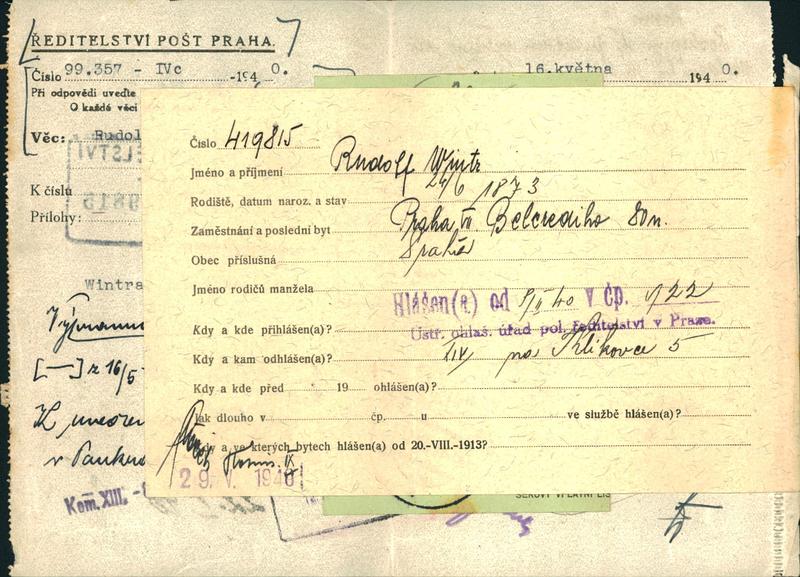 ŘEDITELSTVÍ POŠT PRAHA.
Číslo 99.357 - IVc -194 0.
16.května 194 0.
Při odpovědi uveďte
O každé věci
Věc: Rudol
K číslu
Přílohy:
Wintra
[—] z 16/5
Kom. XIII.
Číslo 419815
Jméno a příjmení Rudolf Wintr
Rodiště, datum naroz. a stav 24/6 1873
Zaměstnání a poslední byt Praha VII Belcrediho 80n.
Obec příslušná Praha
Jméno rodičů manžela
Hlášen(a) od 5/II 40 v čp. 722
Kdy a kde přihlášen(a)?
Ústř. ohlaš. úřad pol. ředitelství v Praze.
Kdy a kam odhlášen(a)? XIV na Klikovce 5
Kdy a kde před 19 ohlášen(a)?
Jak dlouho v čp. u ve službě hlášen(a)?
Kdy a ve kterých bytech hlášen(a) od 20.-VIII.-1913?
29. V. 1940